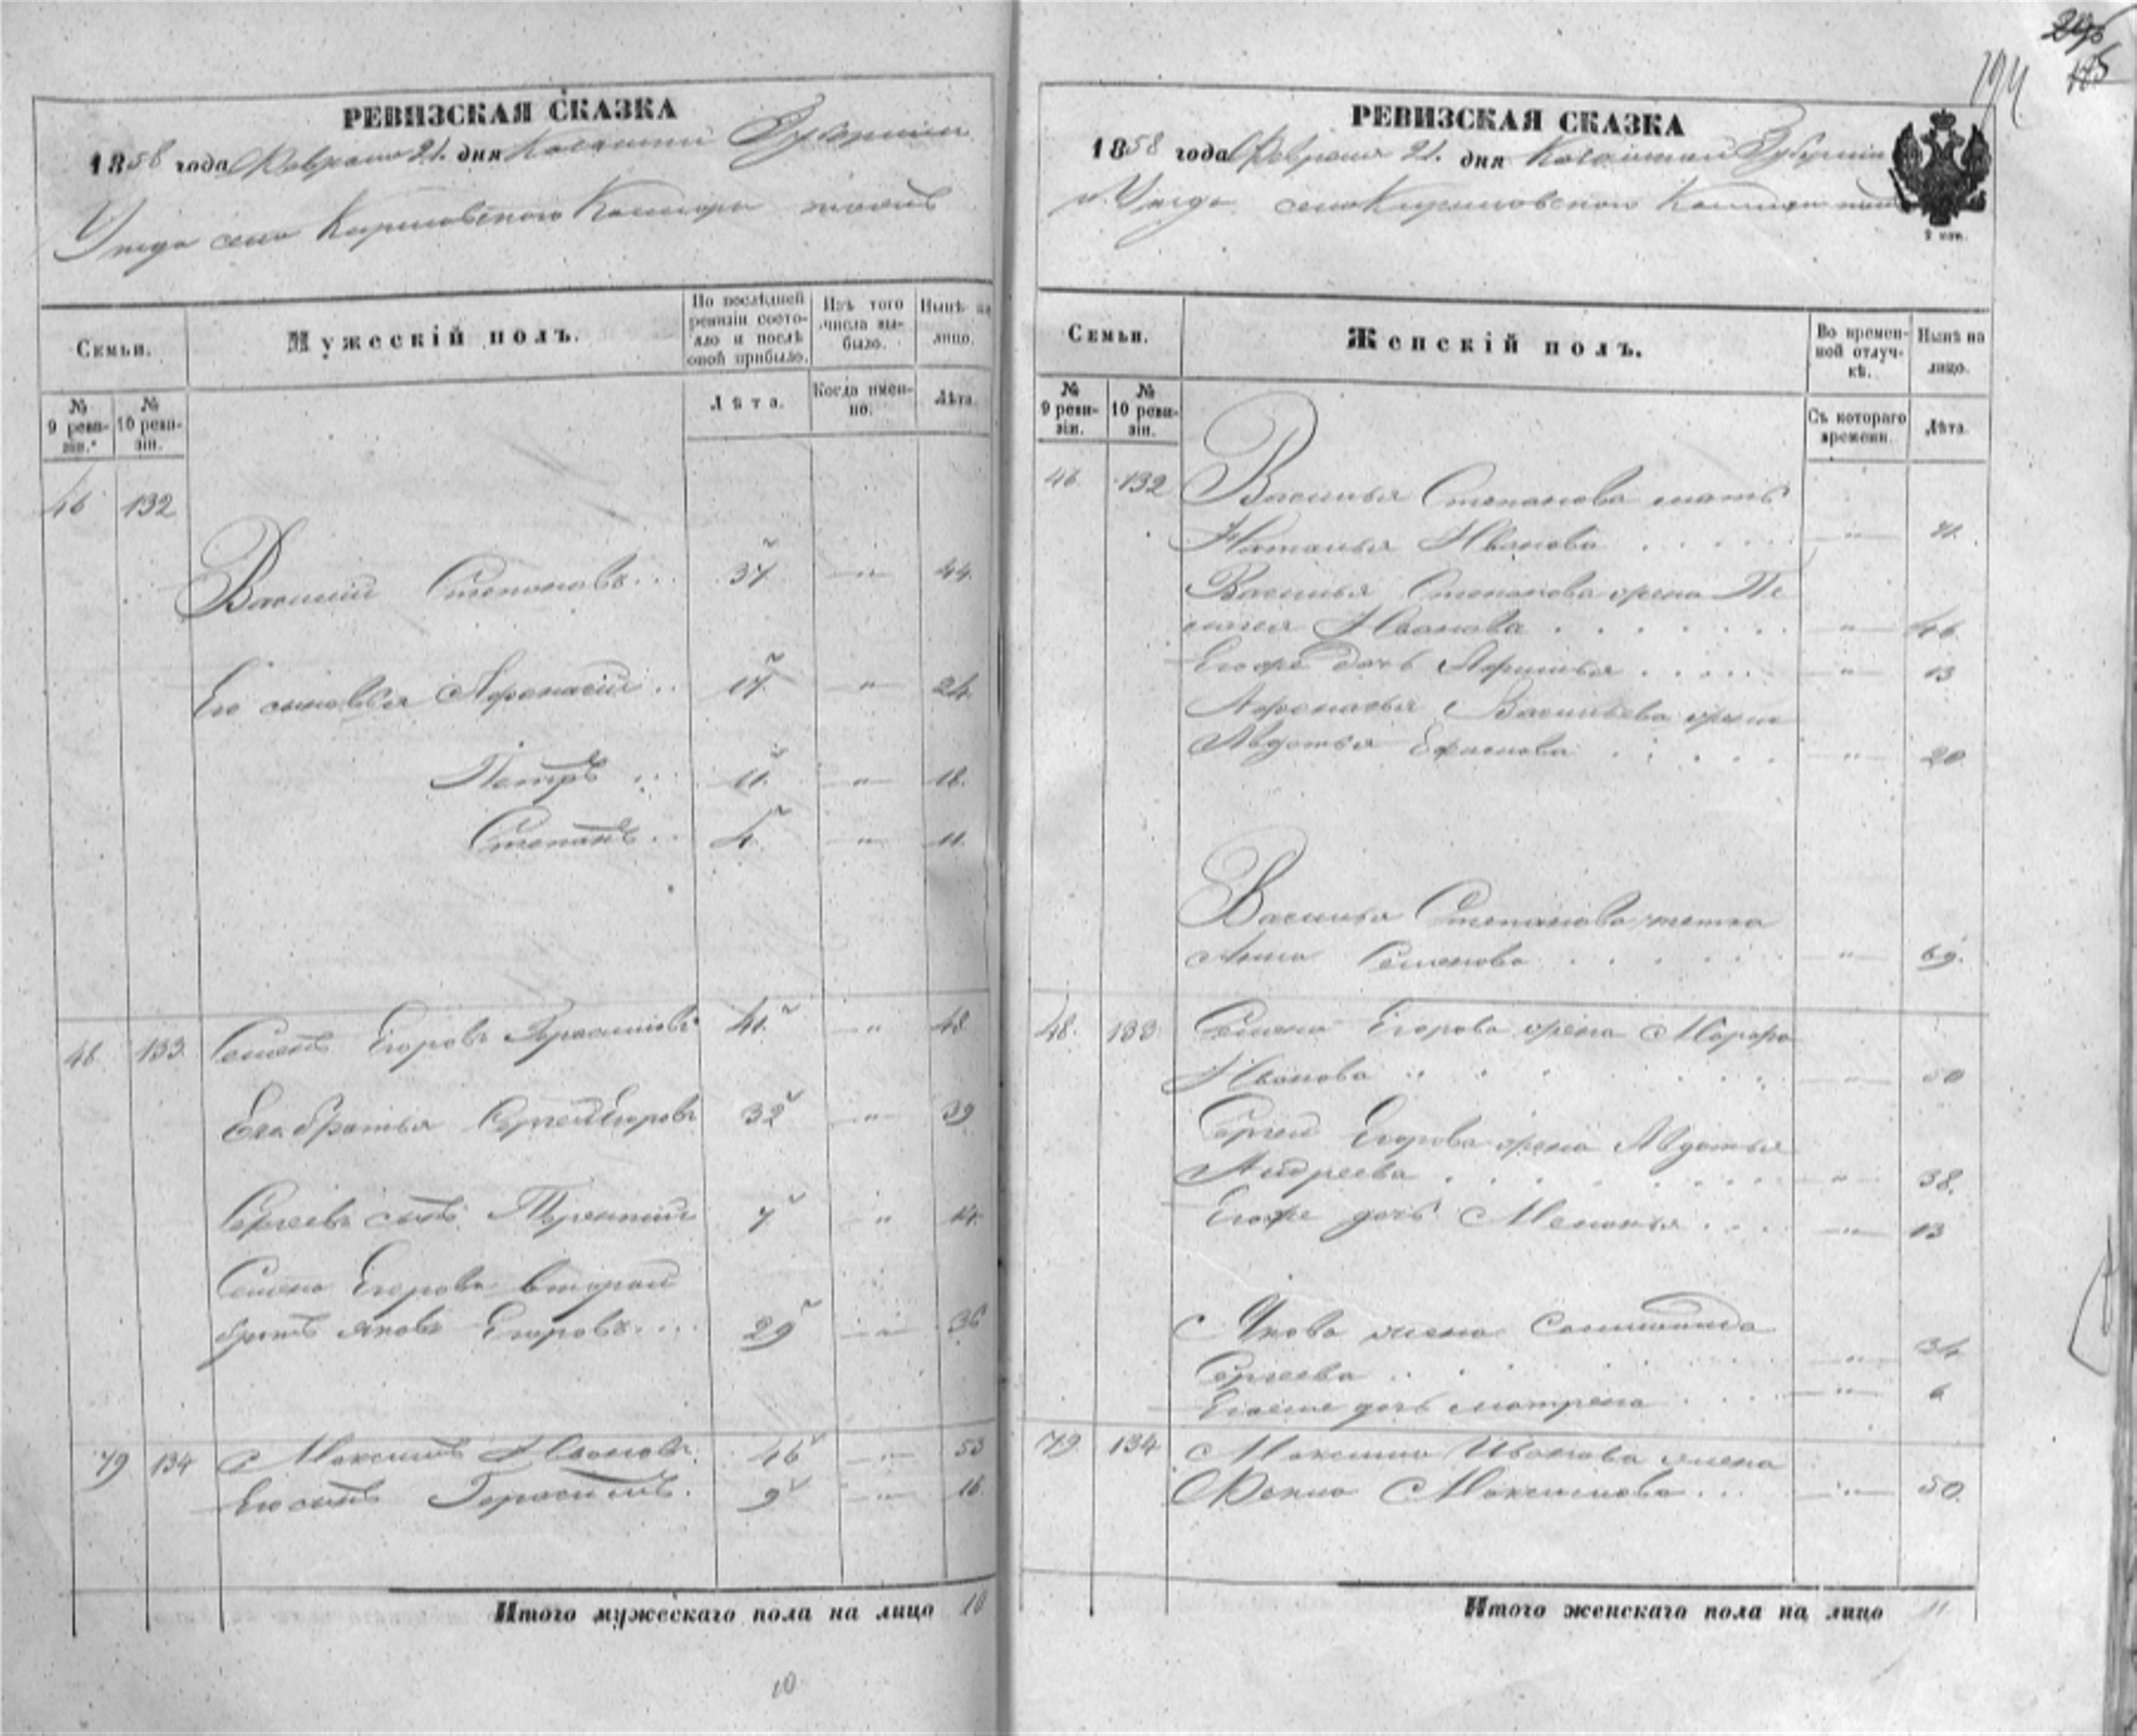 РЕВИЗСКАЯ СКАЗКА
1858 года Февраля 21. дня Казанской Губернии
Уезда села
Семьи.
Мужескій полъ.
По послѣдней ревизіи состояло и послѣ оной прибыло.
Изъ того числа выбыло.
Нынѣ на лицо.
№ 9 ревизіи.
№ 10 ревизіи.
Лѣта.
Когда именно.
Лѣта.
46 132
Василій Степановъ... 37 — " — 44.
Его сыновья Афонасій.. 17. " 24
Петръ ... 11. — " — 18.
Степанъ.. 4. — " — 11.
48. 133. Семенъ Егоровъ Герасимовъ 41. — " 48.
Его братья Сергей Егоровъ 32 — " — 39
Сергеевъ сынъ Терентий 7 — " 14.
Семена Егорова второй
братъ Яковъ Егоровъ.... 29 — " — 36
79 134 Максимъ Ивановъ. 46 — " — 53
Его сынъ Герасимъ. 9 — " — 16
Итого мужескаго пола на лицо 10
10
194
РЕВИЗСКАЯ СКАЗКА
1858 года Февраля 21. дня Казанской Губерніи
Уезда села
2 коп.
Семьи.
Женскій полъ.
Во временной отлучкѣ.
Нынѣ на лицо.
№ 9 ревизіи.
№ 10 ревизіи.
Съ котораго времени.
Лѣта.
46. 132 Василья Степанова мать
Наталья Иванова . . . . . — " —
Василья Степанова жена Пе
лагея Иванова . . . . . . . — " — 46.
Егоже дочь Афимья . . . . . . — " — 13
Афонасья Васильева жена
Авдотья Ефимова . . . . . — " — 20
Василья Степанова тетка
Анна Семенова . . . . . . — " — 69.
48. 133 Семена Егорова жена Марфа
Иванова . . . . . . . — " — 50
Сергея Егорова жена Авдотья
Андреева . . . . . . . . — " — 38.
Егоже дочь Меланья . . . . — " — 13
Якова жена Соломонида
Сергеева . . . . . . . — " — 34
Егоже дочь Матрена . . . . — " — 6
79. 134 Максима Иванова жена
Фекла Максимова... — " — 50.
Итого женскаго пола на лицо 11